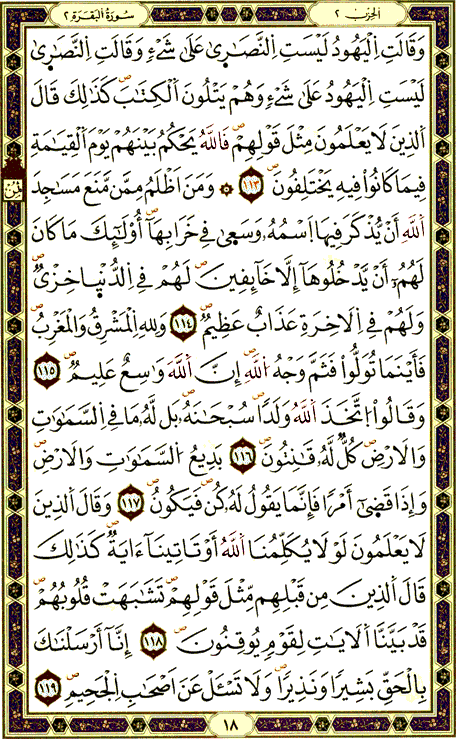 سُورَةُ الْبَقَرَةِ ٢
الحِزب ٢
وَقَالَتِ اِ۬لْيَهُودُ لَيْسَتِ اِ۬لنَّصَٰر۪يٰ عَلَيٰ شَےْءٖ وَقَالَتِ اِ۬لنَّصَٰر۪يٰ
لَيْسَتِ اِ۬لْيَهُودُ عَلَيٰ شَےْءٖ وَهُمْ يَتْلُونَ اَ۬لْكِتَٰبَۖ كَذَٰلِكَ قَالَ
اَ۬لذِينَ لَا يَعْلَمُونَ مِثْلَ قَوْلِهِمْۖ فَاللَّهُ يَحْكُمُ بَيْنَهُمْ يَوْمَ اَ۬لْقِيَٰمَةِ
فِيمَا كَانُواْ فِيهِ يَخْتَلِفُونَۖ ١١٣ ۞ وَمَنَ اَظْلَمُ مِمَّن مَّنَعَ مَسَٰجِدَ
اَ۬للَّهِ أَنْ يُّذْكَرَ فِيهَا اَ۪سْمُهُۥ وَسَع۪يٰ فِے خَرَابِهَاۖ أُوْلَٰٓئِكَ مَا كَانَ
لَهُمُۥٓ أَنْ يَّدْخُلُوهَآ إِلَّا خَآئِفِينَۖ لَهُمْ فِے اِ۬لدُّنْي۪ا خِزْيٞۖ
وَلَهُمْ فِے اِ۬لَاخِرَةِ عَذَابٌ عَظِيمٞۖ ١١٤ وَلِلهِ اِ۬لْمَشْرِقُ وَالْمَغْرِبُۖ
فَأَيْنَمَا تُوَلُّواْ فَثَمَّ وَجْهُ اُ۬للَّهِۖ إِنَّ اَ۬للَّهَ وَٰسِعٌ عَلِيمٞۖ ١١٥
وَقَالُواْ اُ۪تَّخَذَ اَ۬للَّهُ وَلَداٗۖ سُبْحَٰنَهُۥۖ بَل لَّهُۥ مَا فِے اِ۬لسَّمَٰوَٰتِ
وَالَارْضِۖ كُلّٞ لَّهُۥ قَٰنِتُونَۖ ١١٦ بَدِيعُ اُ۬لسَّمَٰوَٰتِ وَالَارْضِۖ
وَإِذَا قَض۪يٰٓ أَمْراٗ فَإِنَّمَا يَقُولُ لَهُۥ كُن فَيَكُونُۖ ١١٧ وَقَالَ اَ۬لذِينَ
لَا يَعْلَمُونَ لَوْلَا يُكَلِّمُنَا اَ۬للَّهُ أَوْ تَاتِينَآ ءَايَةٞۖ كَذَٰلِكَ
قَالَ اَ۬لذِينَ مِن قَبْلِهِم مِّثْلَ قَوْلِهِمْۖ تَشَٰبَهَتْ قُلُوبُهُمْۖ
قَدْ بَيَّنَّا اَ۬لَايَٰتِ لِقَوْمٖ يُوقِنُونَۖ ١١٨ إِنَّآ أَرْسَلْنَٰكَ
بِالْحَقِّ بَشِيراٗ وَنَذِيراٗۖ وَلَا تَسْـَٔلْ عَنَ اَصْحَٰبِ اِ۬لْجَحِيمِۖ ١١٩
١٨